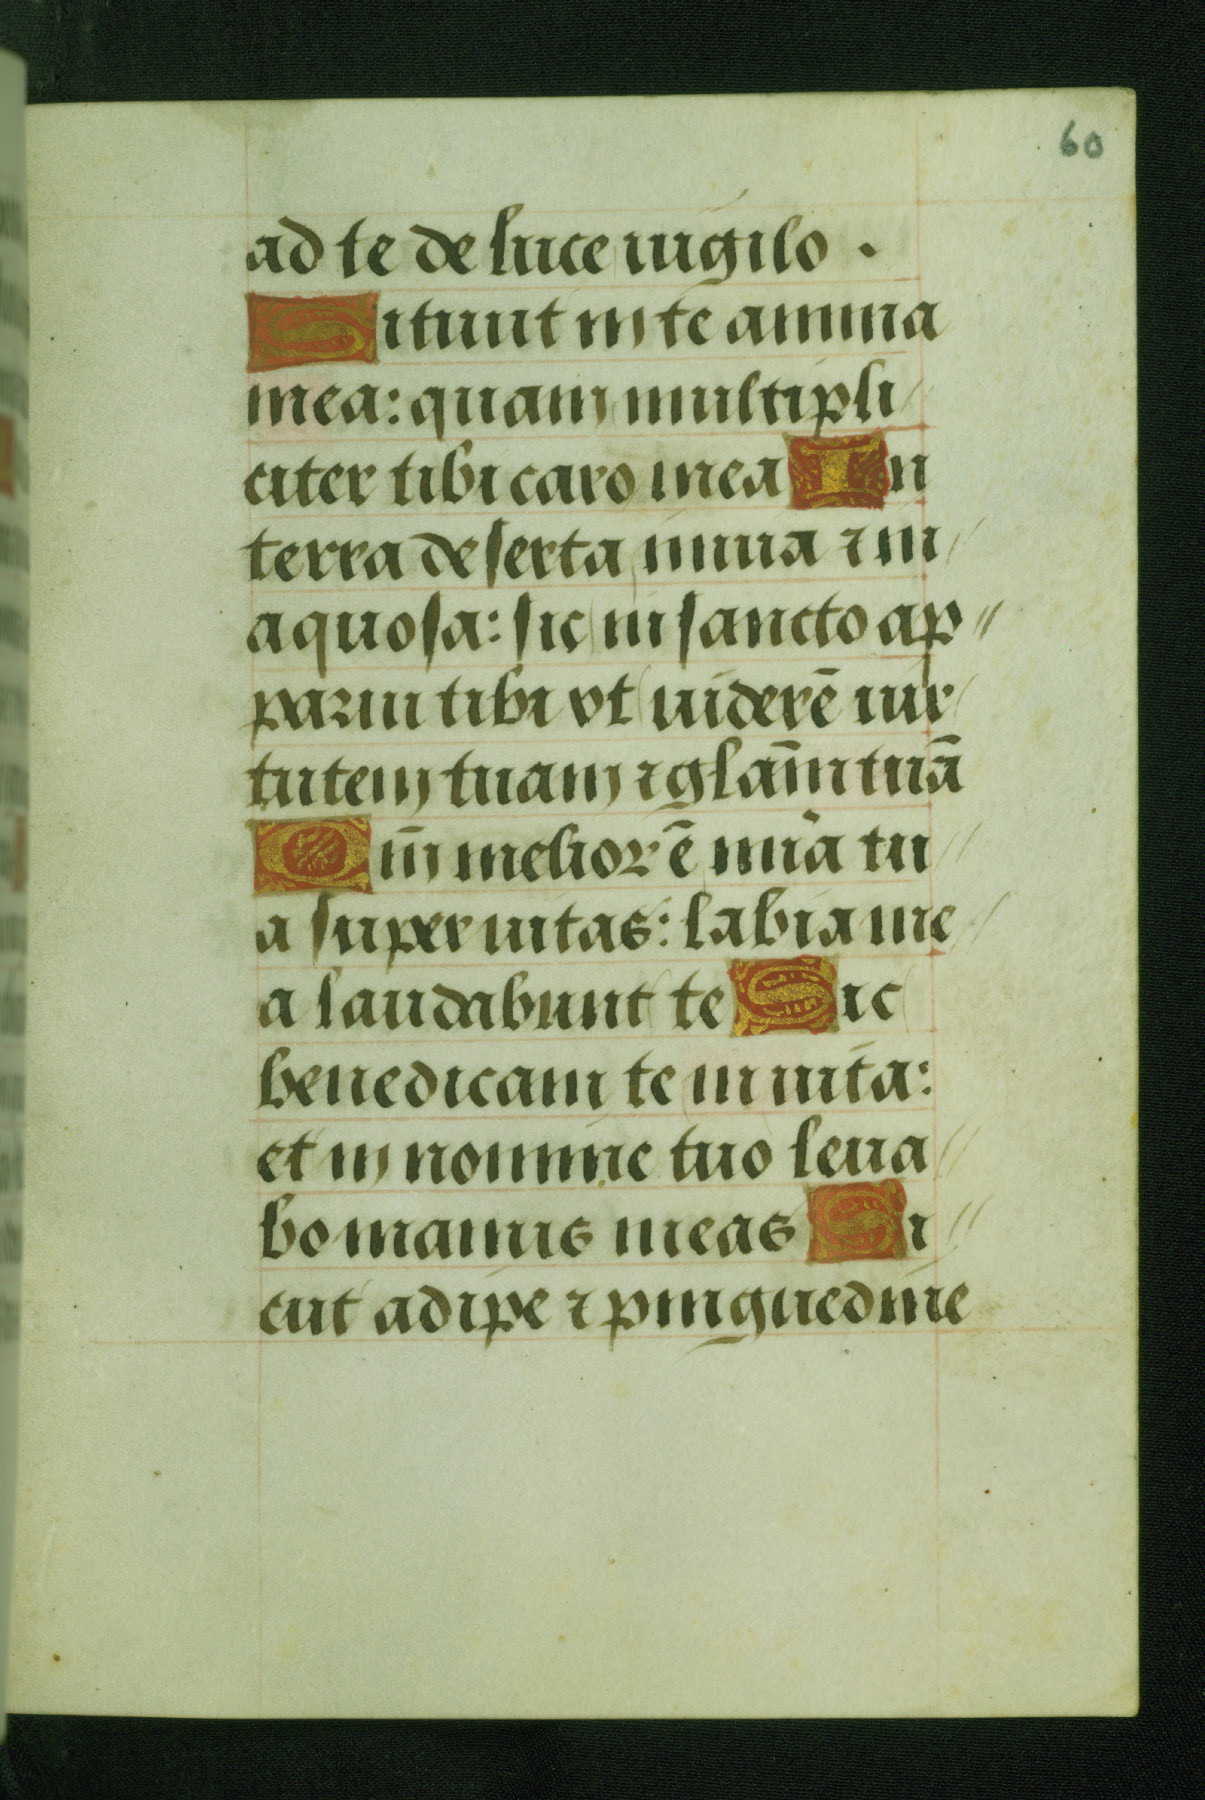 60
ad te de luce uigilo .
Sitiuit in te anima
mea: quam multipli
citer tibi caro mea In
terra deserta inuia ⁊ in
aquosa: sic in sancto ap
parui tibi vt uiderē uir
tutem tuam ⁊ glām tuā
Qm̄ melior ē mīa tu
a super uitas: labia me
a laudabunt te Sic
benedicam te in uita:
et in nomine tuo leua
bo manus meas Si
cut adipe ⁊ pinguedine